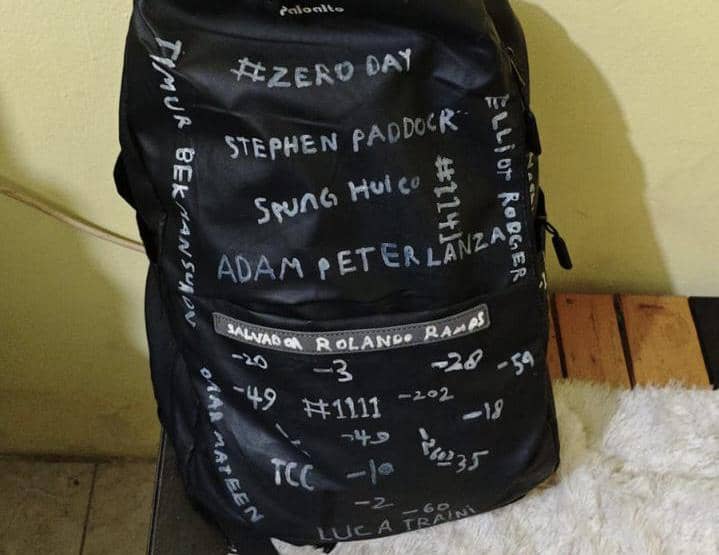 Paloalto
#ZERO DAY
TIMUR BEKMANSUROV
STEPHEN PADDOCK
ELLIOT RODGER
#1141
ADAM PETER LANZA
SALVADOR ROLANDO RAMOS
-20
-3
-28
-59
-49
#1111
-202
-18
-49
-35
TCC
-10
OMAR MATEEN
-2
-60
LUCA TRAINI